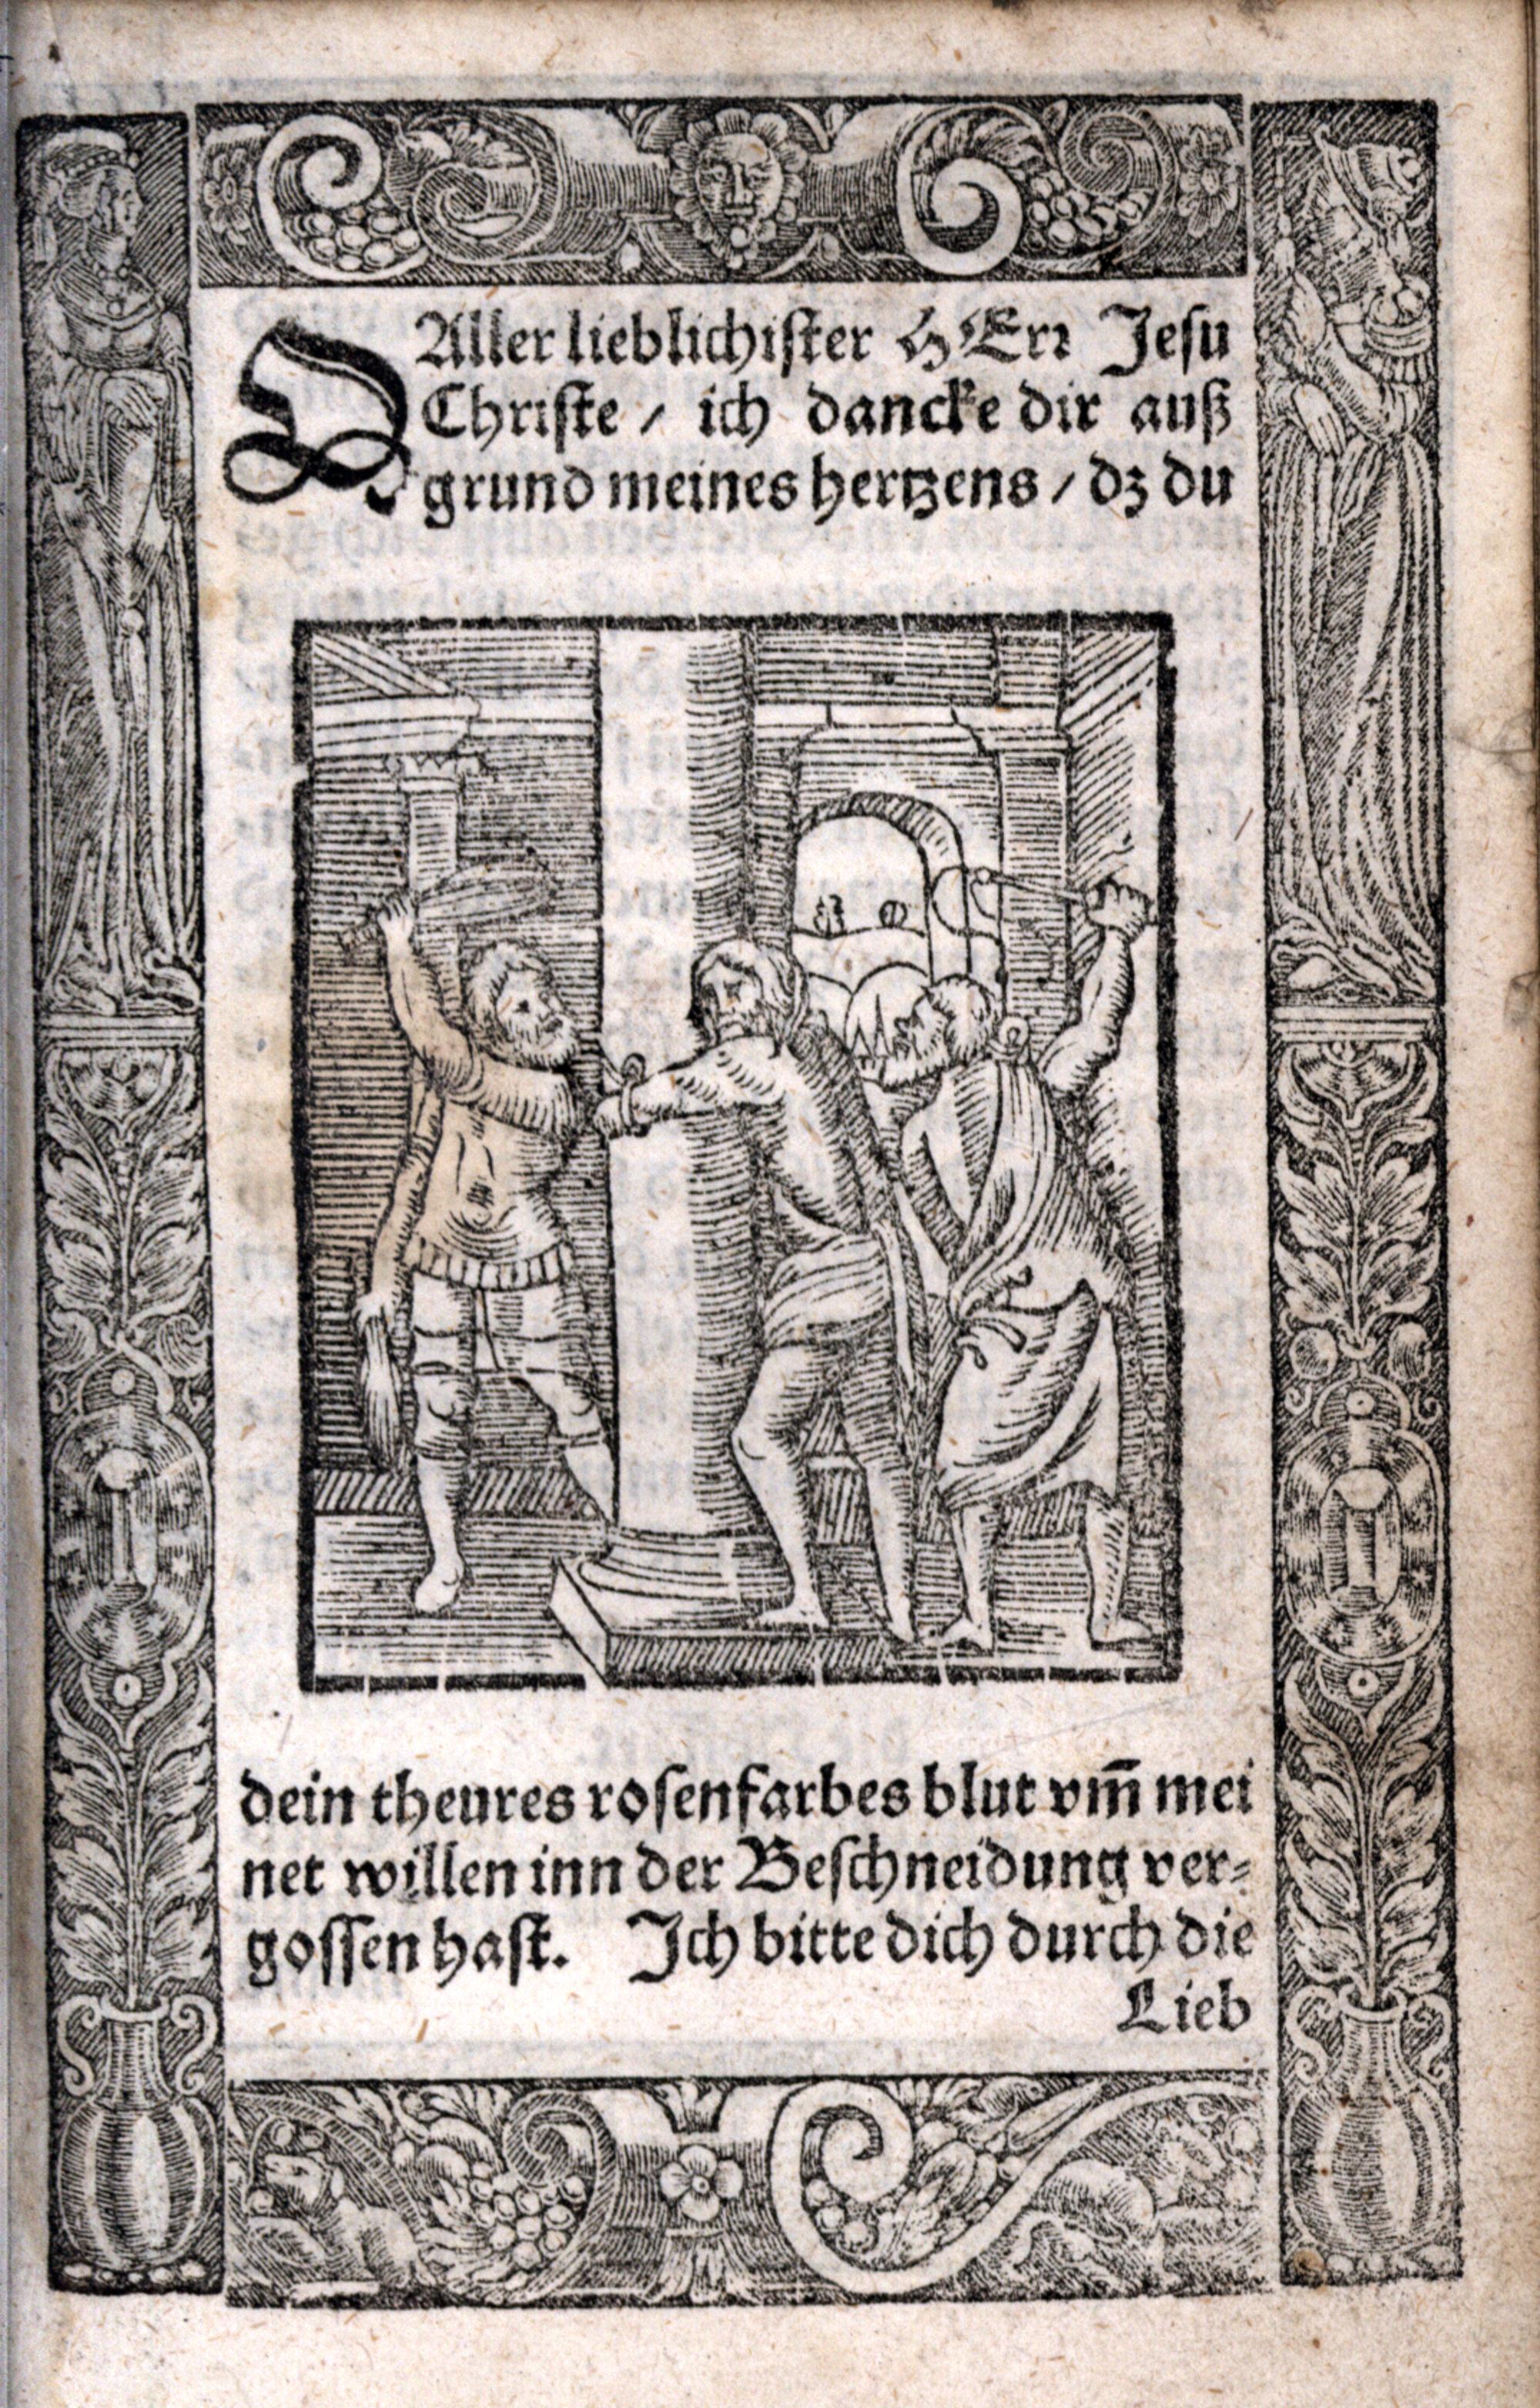 O Aller lieblichister HErr Jesu
Christe / ich dancke dir auß
grund meines hertzens / dz du
dein theures rosenfarbes blut vm̃ mei
net willen inn der Beschneidung ver⸗
gossen hast. Ich bitte dich durch die
Lieb